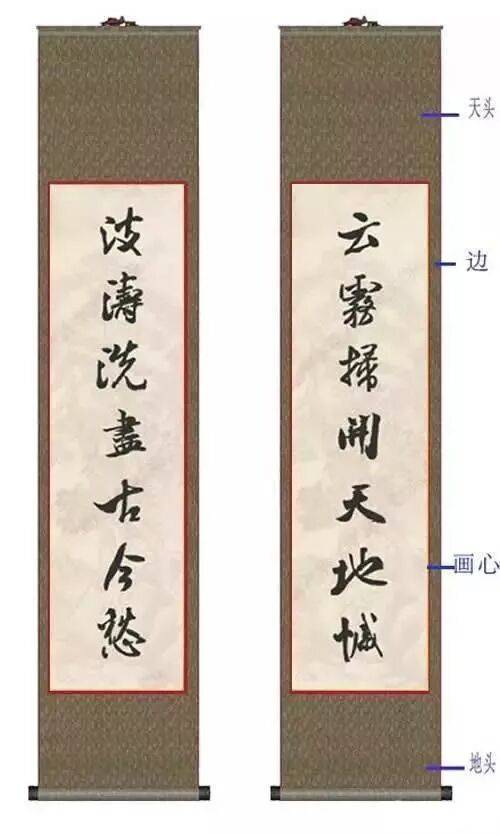 云霧掃開天地憾
波濤洗盡古今愁
天头
边
画心
地头